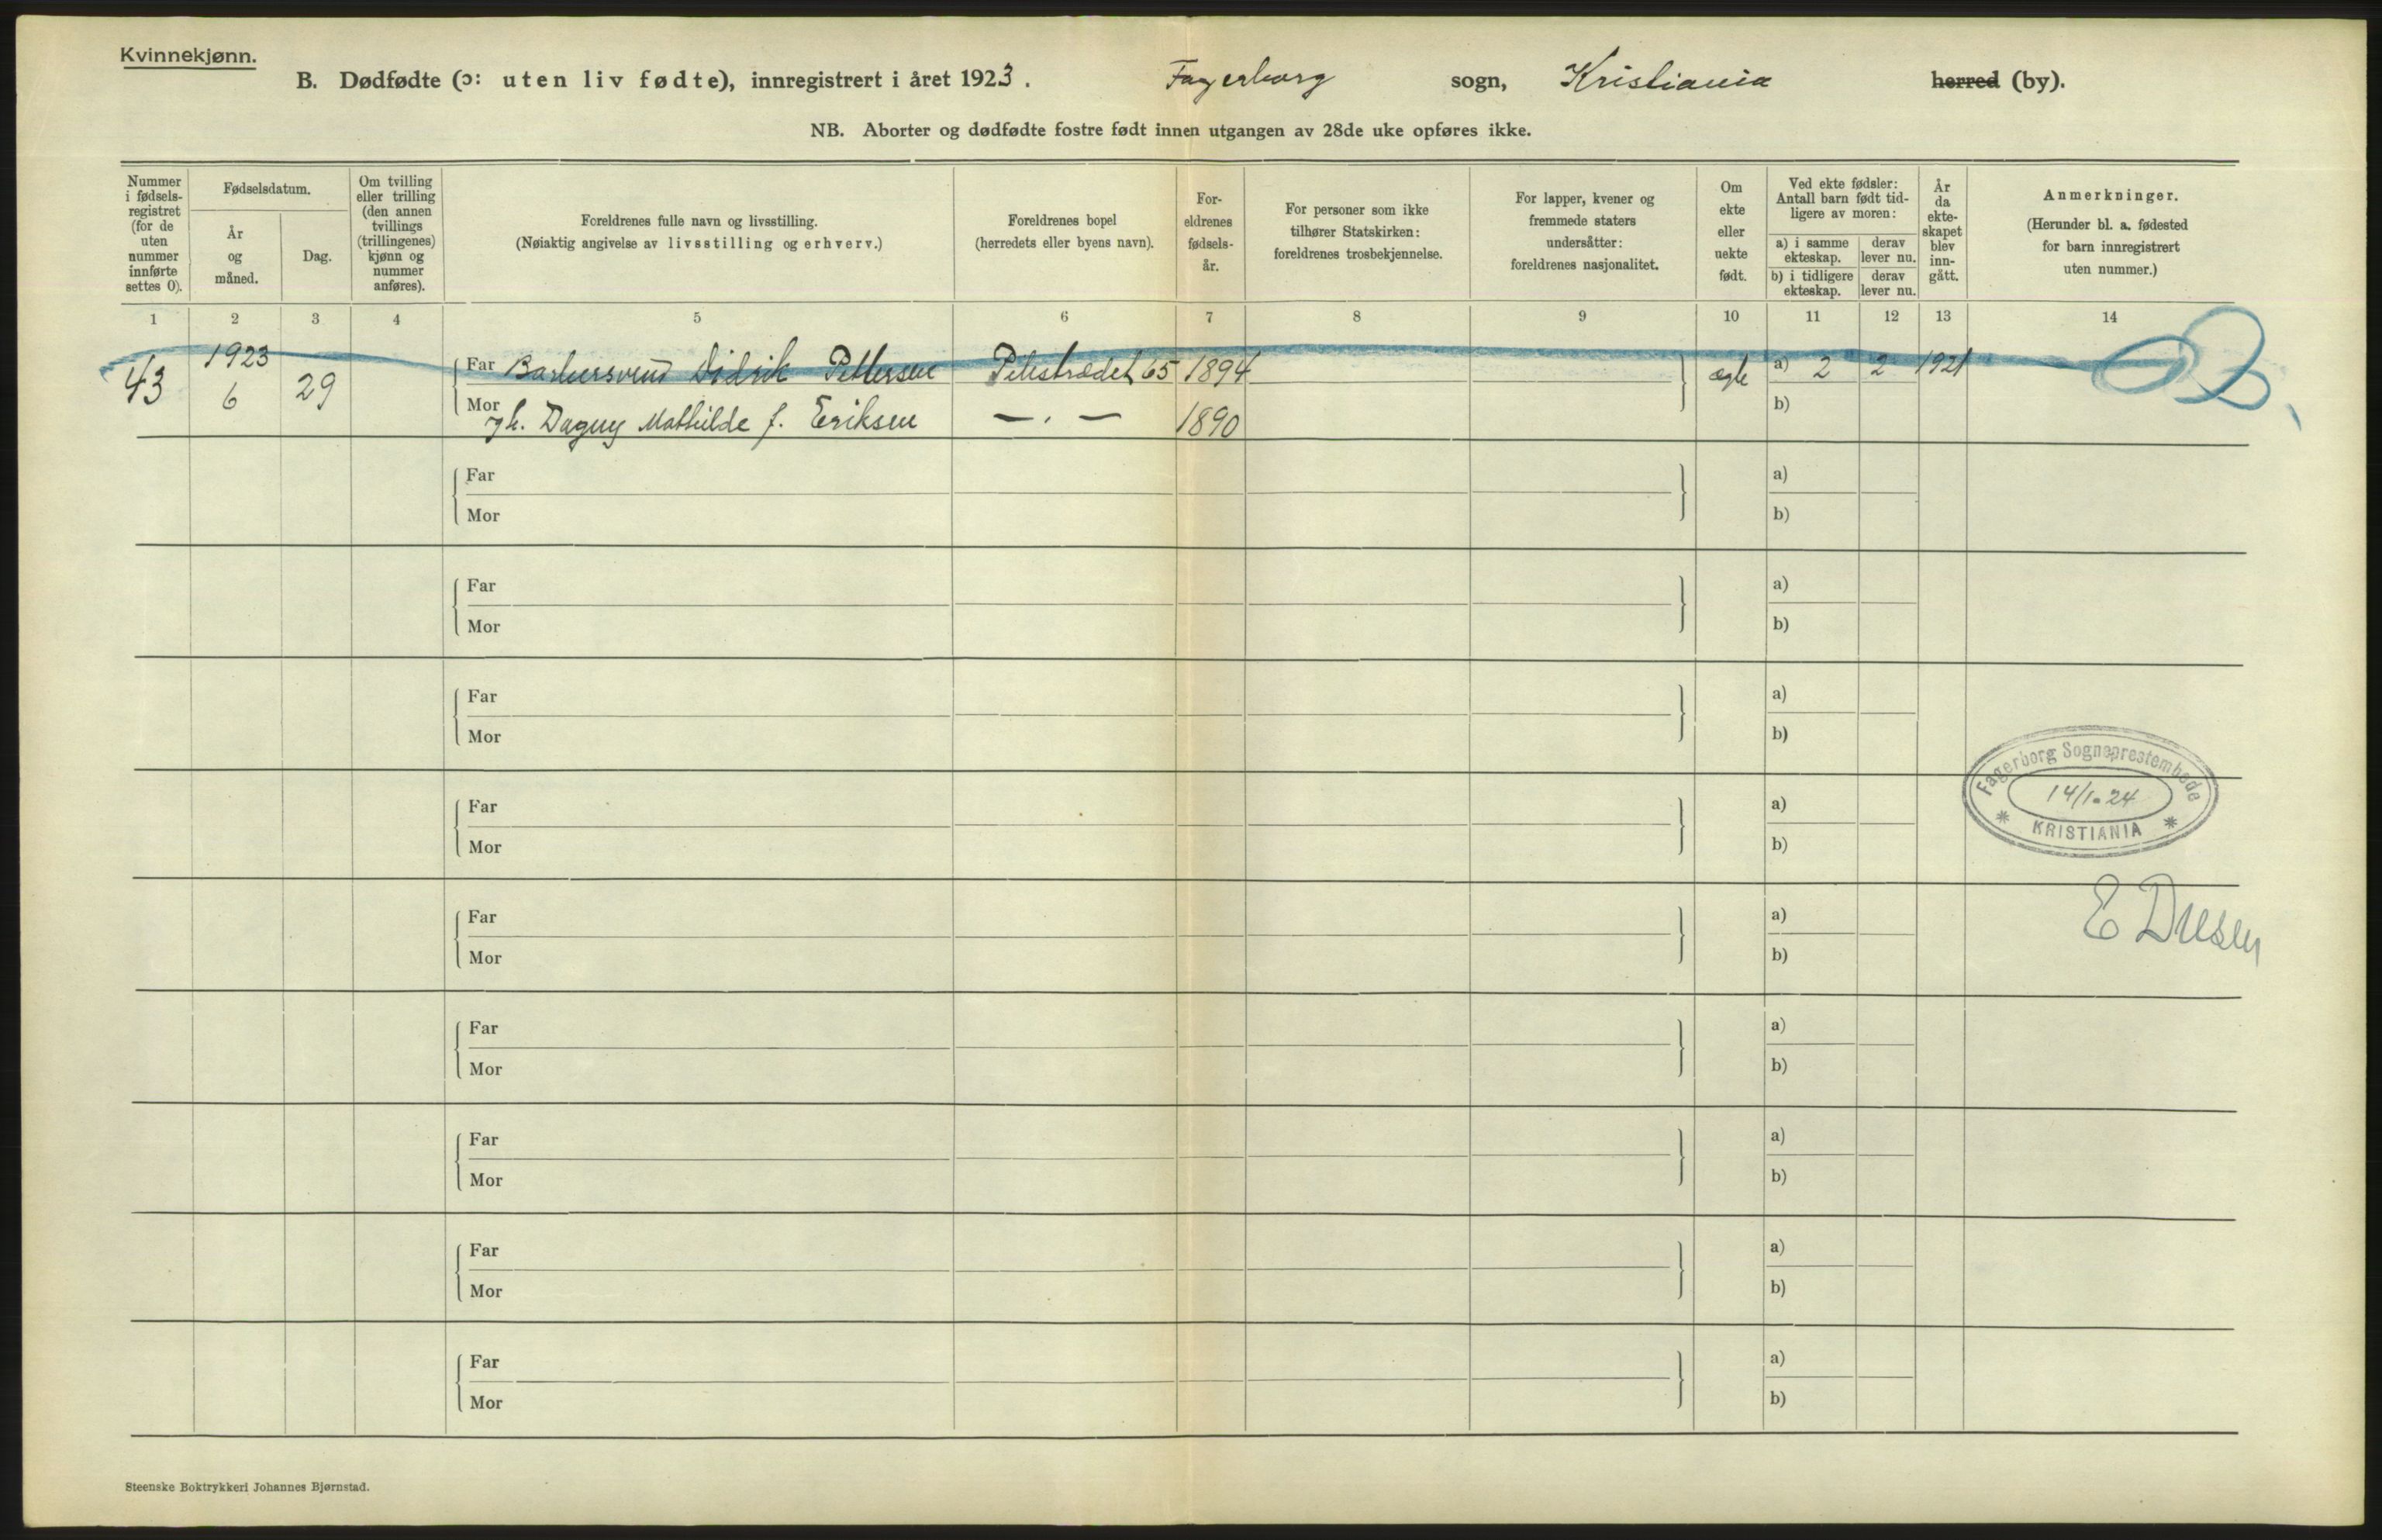 Kvinnekjønn.
B. Dødfødte (ɔ: uten liv fødte), innregistrert i året 1923. Fagerborg sogn, Kristiania herred (by).
NB. Aborter og dødfødte fostre født innen utgangen av 28de uke opføres ikke.
Nummer i fødselsregistret (for de uten nummer innførte settes 0).
Fødselsdatum.
År og måned.
Dag.
Om tvilling eller trilling (den annen tvillings (trillingenes) kjønn og nummer anføres).
Foreldrenes fulle navn og livsstilling.
(Nøiaktig angivelse av livsstilling og erhverv.)
Foreldrenes bopel
(herredets eller byens navn).
Foreldrenes fødselsår.
For personer som ikke tilhører Statskirken: foreldrenes trosbekjennelse.
For lapper, kvener og fremmede staters undersåtter: foreldrenes nasjonalitet.
Om ekte eller uekte født.
Ved ekte fødsler: Antall barn født tidligere av moren:
a) i samme ekteskap.
derav lever nu.
b) i tidligere ekteskap.
derav lever nu.
År da ekteskapet blev inngått.
Anmerkninger.
(Herunder bl. a. fødested for barn innregistrert uten nummer.)
1 2 3 4 5 6 7 8 9 10 11 12 13 14
43 1923 6 29 Far Barbersvend Didrik Pettersen Pilestrædet 65 1894 ægte a) 2 2 1921
Mor Dagny Mathilde f. Eriksen — . — 1890 b)
Far a)
Mor b)
Far a)
Mor b)
Far a)
Mor b)
Fagerborg Sogneprestembede
14/1-24
KRISTIANIA
Far a)
Mor b)
Far a)
Mor b)
Far a)
Mor b)
Far a)
Mor b)
Far a)
Mor b)
Far a)
Mor b)
Steenske Boktrykkeri Johannes Bjørnstad.